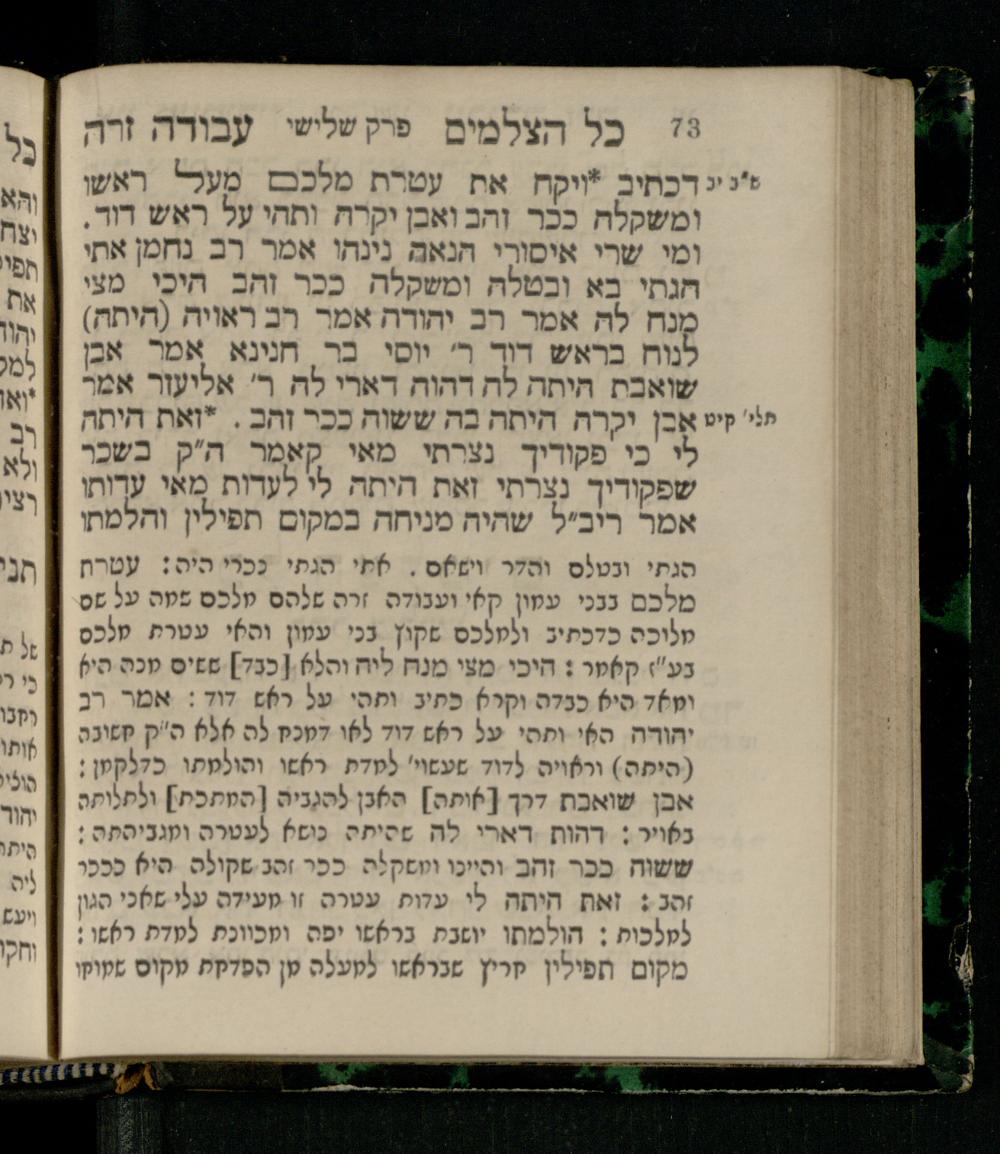 73 כל הצלמים פרק שלישי עבודה זרה
ש"ב יב דכתיב *ויקח את עטרת מלכם מעל ראשו
ומשקלה ככר זהב ואבן יקרה ותהי על ראש דוד.
ומי שרי איסורי הנאה נינהו אמר רב נחמן אתי
הגתי בא ובטלה ומשקלה ככר זהב היכי מצי
מנח לה אמר רב יהודה אמר רב ראויה (היתה)
לנוח בראש דוד ר' יוסי בר חנינא אמר אבן
שואבת היתה לה דהוה דארי לה ר' אליעזר אמר
תלי' קיט אבן יקרה היתה בה ששוה ככר זהב. *זאת היתה
לי כי פקודיך נצרתי מאי קאמר ה"ק בשכר
שפקודיך נצרתי זאת היתה לי לעדות מאי עדותו
אמר ריב"ל שהיה מניחה במקום תפילין והלמתו
הגתי ובטלם והדר וישאם. אתי הגתי נכרי היה: עטרת
מלכם בבני עמון קאי ועבודה זרה שלהם מלכם שמה על שם
מליכה כדכתיב ולמלכם שקוץ בני עמון והאי עטרת מלכם
בע"ז קאמר: היכי מצי מנח ליה והלא [ככר] ששים מנה היא
ומאד היא כבדה וקרא כתיב ותהי על ראש דוד: אמר רב
יהודה האי ותהי על ראש דוד לאו דמנח לה אלא ה"ק חשובה
(היתה) וראויה לדוד שעשוי' למדת ראשו והולמתו כדלקמן:
אבן שואבת דרך [אותה] האבן להגביה [המתכת] ולתלותה
באויר: דהות דארי לה שהיתה נושא לעטרה ומגביהתה:
ששוה ככר זהב והיינו ומשקלה ככר זהב שקולה היא כככר
זהב: זאת היתה לי עדות עטרה זו מעידה עלי שאני הגון
למלכות: הולמתו יושבת בראשו יפה ומכוונת למדת ראשו:
מקום תפילין חריץ שבראשו למעלה מן הפדחת מקום שמוחו